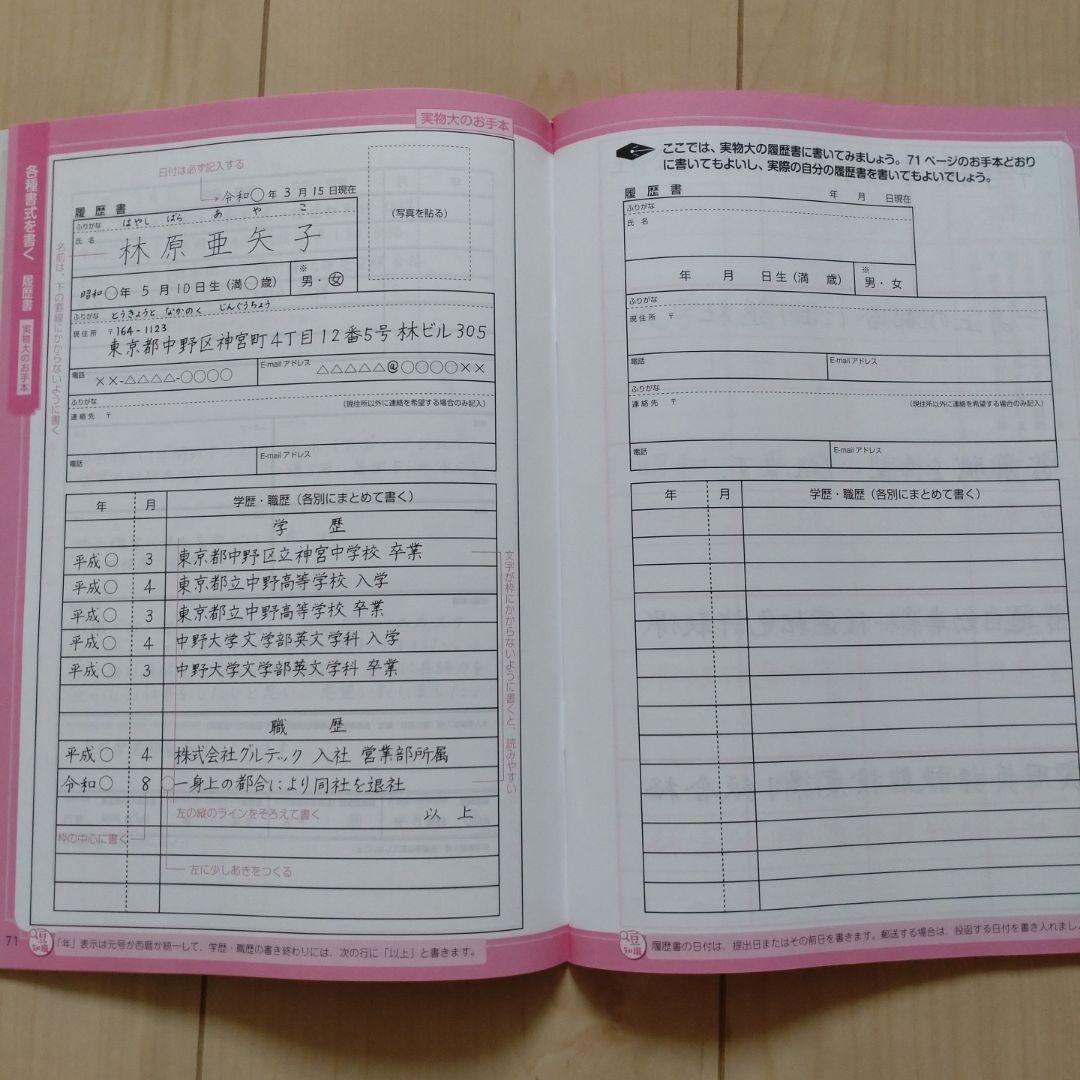 実物大のお手本
各種書式を書く 履歴書 実物大のお手本
日付は必ず記入する
令和〇年3月15日現在
履歴書
(写真を貼る)
ふりがな はやし ばら あ や こ
氏名 林原亜矢子
名前は、下の罫線にかからないように書く
昭和〇年5月10日生(満〇歳) ※ 男・女
ふりがな とうきょうと なかのく じんぐうちょう
現住所 〒164-1123
東京都中野区神宮町4丁目12番5号 林ビル305
電話 ××-△△△△-〇〇〇〇 E-mailアドレス △△△△△@〇〇〇〇××
ふりがな
連絡先 〒 (現住所以外に連絡を希望する場合のみ記入)
電話 E-mailアドレス
年 月 学歴・職歴(各別にまとめて書く)
学 歴
平成〇 3 東京都中野区立神宮中学校 卒業
平成〇 4 東京都立中野高等学校 入学
平成〇 3 東京都立中野高等学校 卒業
平成〇 4 中野大学文学部英文学科 入学
平成〇 3 中野大学文学部英文学科 卒業
文字が枠にかからないように書くと、読みやすい
職 歴
平成〇 4 株式会社グルテック 入社 営業部所属
令和〇 8 一身上の都合により同社を退社
左の縦のラインをそろえて書く
以 上
枠の中心に書く
左に少しあきをつくる
71
豆知識 「年」表示は元号か西暦か統一して、学歴・職歴の書き終わりには、次の行に「以上」と書きます。
ここでは、実物大の履歴書に書いてみましょう。71ページのお手本どおり
に書いてもよいし、実際の自分の履歴書を書いてもよいでしょう。
履歴書 年 月 日現在
ふりがな
氏名
年 月 日生(満 歳) ※ 男・女
ふりがな
現住所 〒
電話 E-mailアドレス
ふりがな
連絡先 〒 (現住所以外に連絡を希望する場合のみ記入)
電話 E-mailアドレス
年 月 学歴・職歴(各別にまとめて書く)
豆知識 履歴書の日付は、提出日またはその前日を書きます。郵送する場合は、投函する日付を書き入れまし